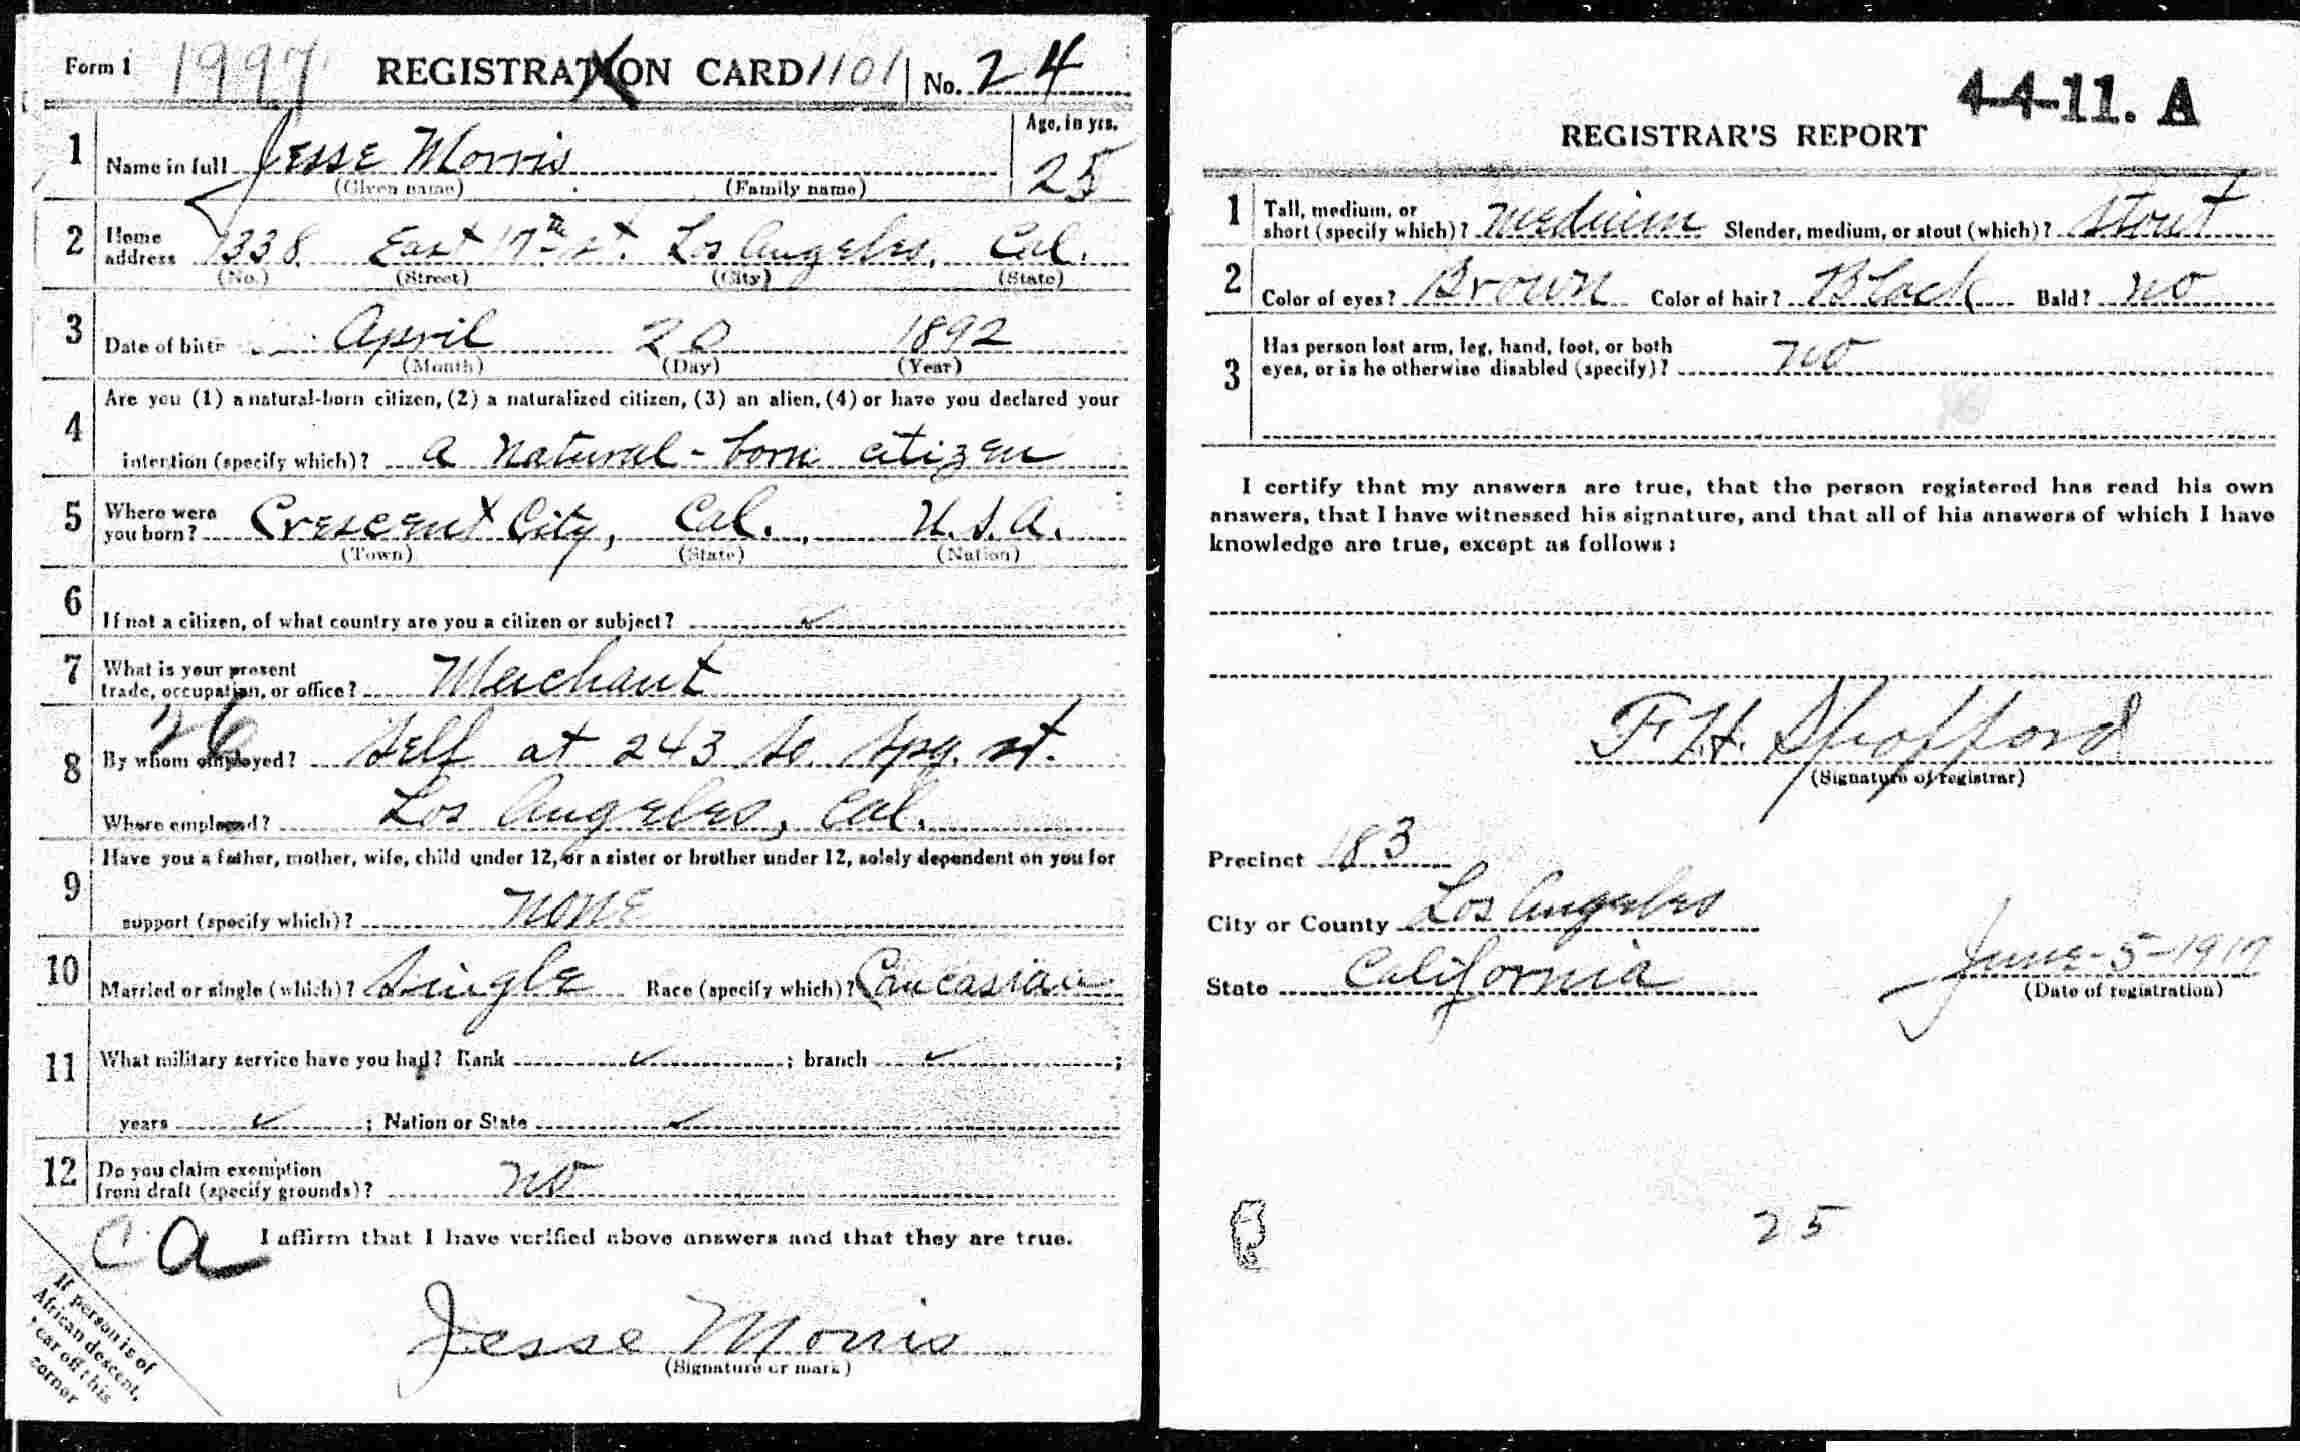 Form 1 1997 REGISTRATION CARD 1101 No. 24
1 Name in full Jesse Morris Age, in yrs.
(Given name) (Family name) 25
2 Home address 1338 East 17th st. Los Angeles, Cal.
(No.) (Street) (City) (State)
3 Date of birth April 20 1892
(Month) (Day) (Year)
4 Are you (1) a natural-born citizen, (2) a naturalized citizen, (3) an alien, (4) or have you declared your
intention (specify which)? a natural-born citizen
5 Where were you born? Crescent City, Cal., U.S.A.
(Town) (State) (Nation)
6 If not a citizen, of what country are you a citizen or subject? ✓
7 What is your present
trade, occupation, or office? Merchant
26
8 By whom employed? Self at 243 So. Spg. st.
Where employed? Los Angeles, Cal.
9 Have you a father, mother, wife, child under 12, or a sister or brother under 12, solely dependent on you for
support (specify which)? none
10 Married or single (which)? Single Race (specify which)? Caucasian
11 What military service have you had? Rank ✓ ; branch ✓ ;
years ✓ ; Nation or State ✓
12 Do you claim exemption
from draft (specify grounds)? no
C a I affirm that I have verified above answers and that they are true.
Jesse Morris
(Signature or mark)
If person is of
African descent,
tear off this
corner
4-4-11. A
REGISTRAR'S REPORT
1 Tall, medium, or
short (specify which)? medium Slender, medium, or stout (which)? Stout
2 Color of eyes? Brown Color of hair? Black Bald? no
3 Has person lost arm, leg, hand, foot, or both
eyes, or is he otherwise disabled (specify)? no
I certify that my answers are true, that the person registered has read his own
answers, that I have witnessed his signature, and that all of his answers of which I have
knowledge are true, except as follows:
F. H. Spofford
(Signature of registrar)
Precinct 183
City or County Los Angeles
State California June-5-1917
(Date of registration)
25